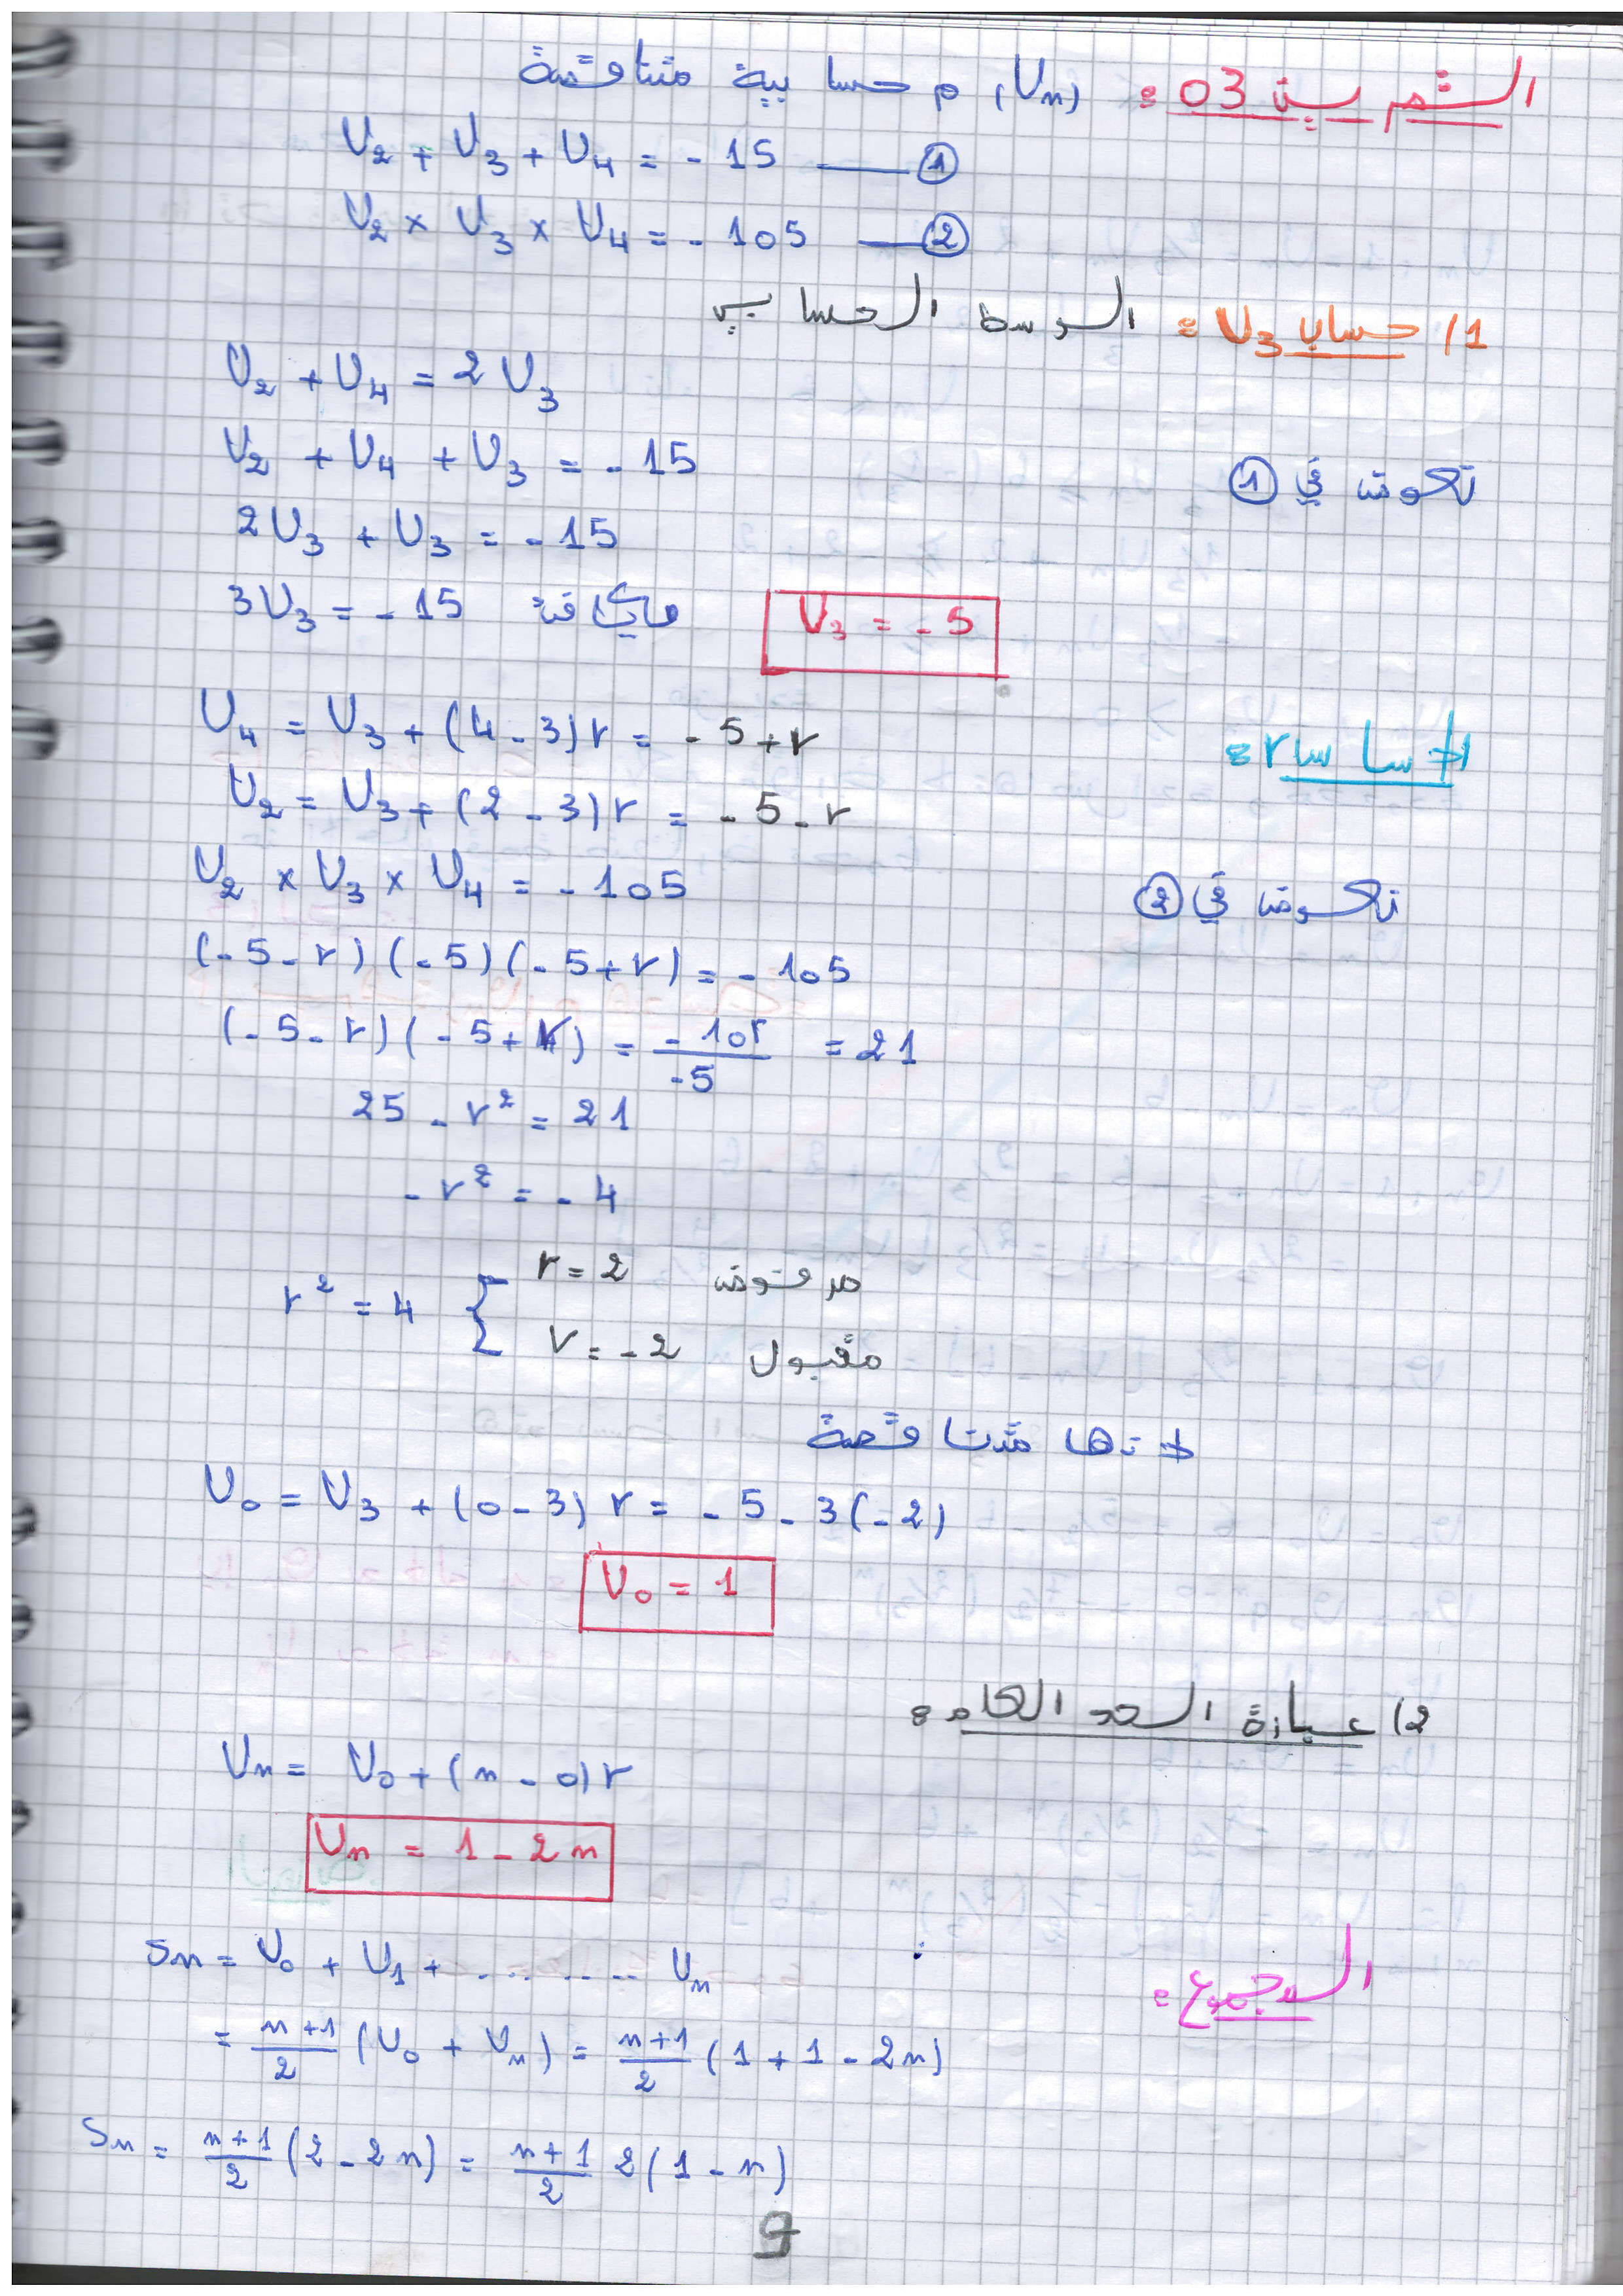 التمرين 03 : (Un) م حسابية متناقصة
U2 + U3 + U4 = - 15 —— ①
U2 × U3 × U4 = - 105 —— ②
1/ حساب U3 : الوسط الحسابي
U2 + U4 = 2 U3
نعوض في ①
U2 + U4 + U3 = - 15
2U3 + U3 = - 15
3U3 = - 15 U3 = - 5
الاساس r :
U4 = U3 + (4 - 3) r = - 5 + r
U2 = U3 + (2 - 3) r = - 5 - r
نعوض في ②
U2 × U3 × U4 = - 105
(- 5 - r) (- 5) (- 5 + r) = - 105
(- 5 - r) (- 5 + r) = - 105 / -5 = 21
25 - r² = 21
- r² = - 4
r² = 4 { r = 2 مرفوض
r = - 2 مقبول
لانها متناقصة
U0 = U3 + (0 - 3) r = - 5 - 3 (- 2)
U0 = 1
2/ عبارة الحد العام :
Un = U0 + (n - 0) r
Un = 1 - 2n
المجموع :
Sn = U0 + U1 + .......... Un
= n+1/2 (U0 + Un) = n+1/2 (1 + 1 - 2n)
Sn = n+1/2 (2 - 2n) = n+1/2 2 (1 - n)
9